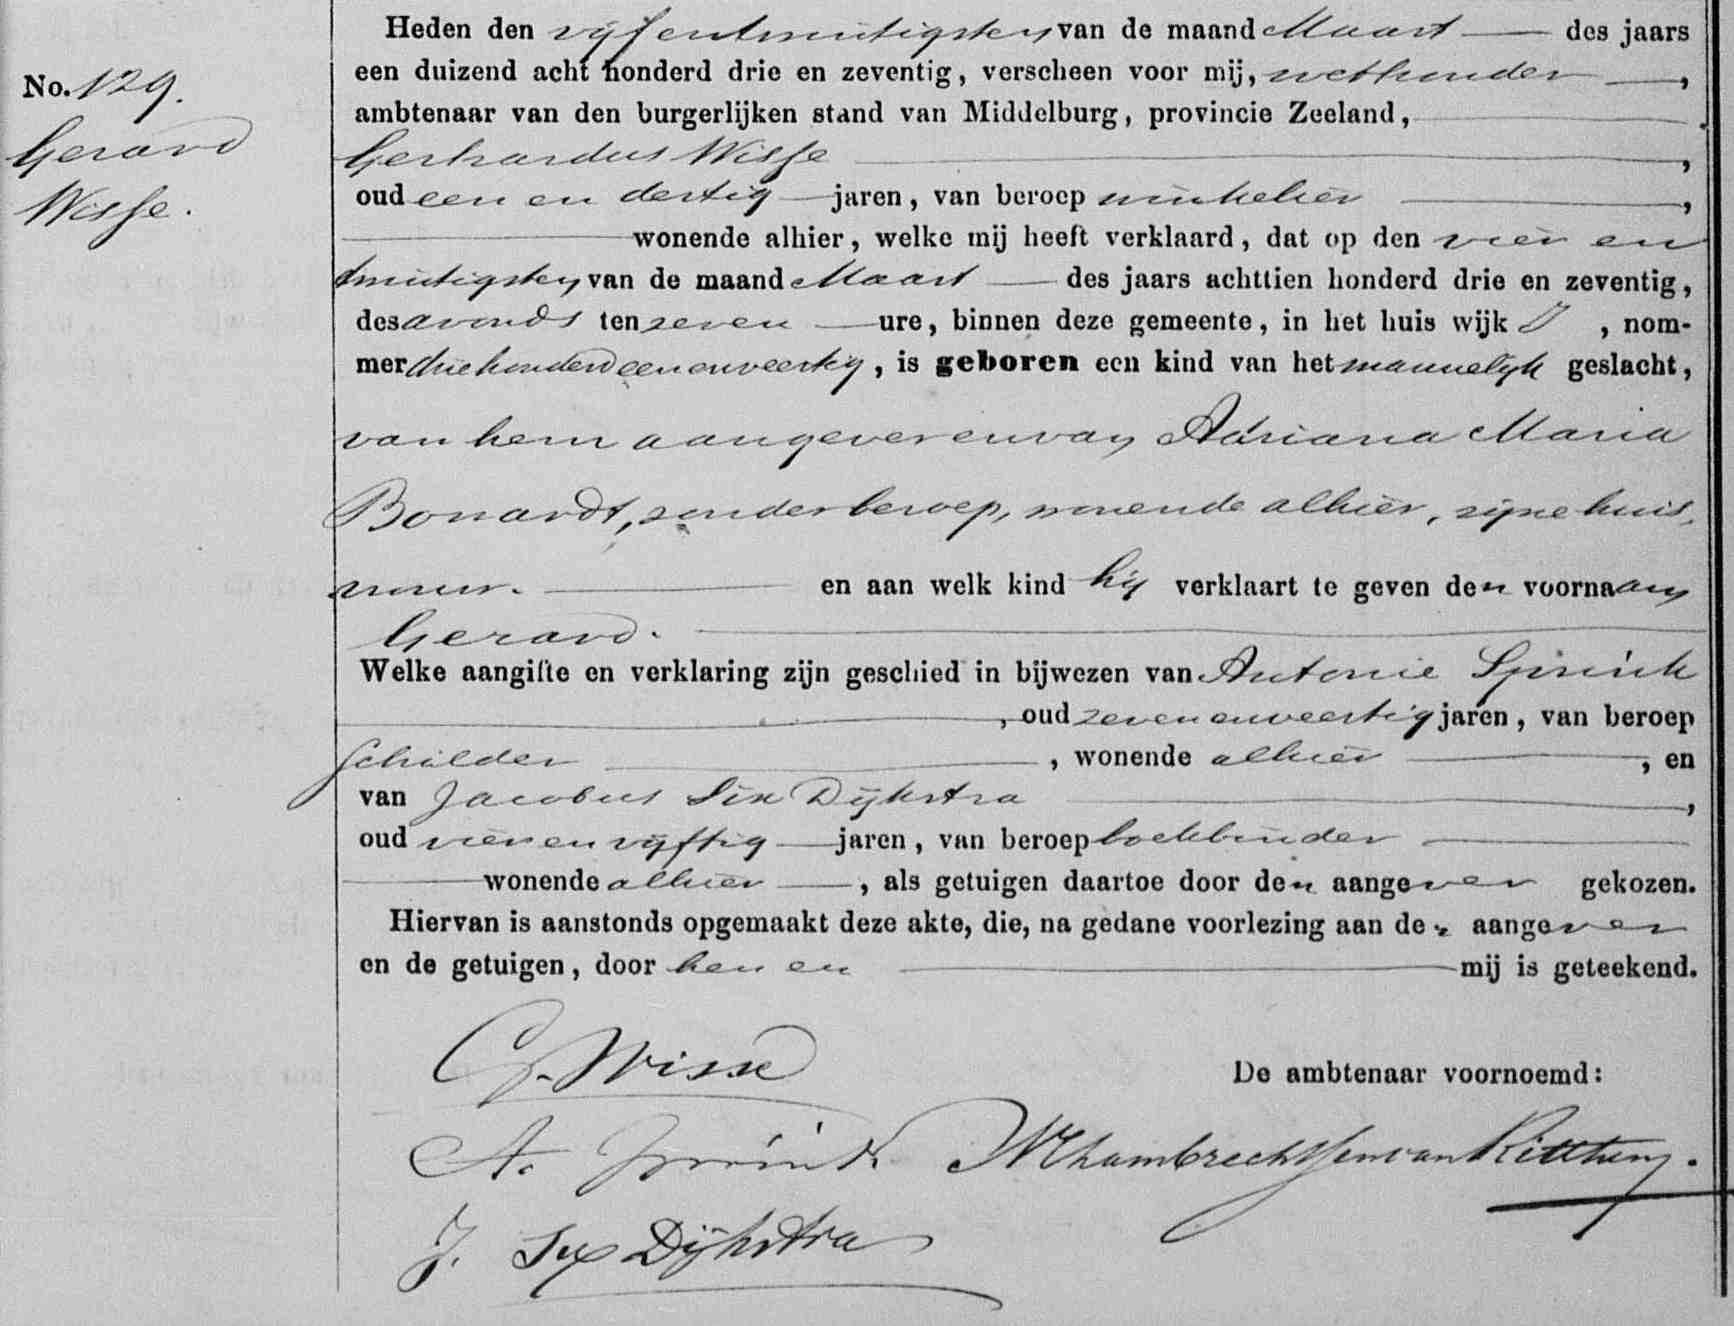 No. 129.
Gerard
Wisse.
Heden den vijfentwintigsten van de maand Maart des jaars
een duizend acht honderd drie en zeventig, verscheen voor mij, wethouder,
ambtenaar van den burgerlijken stand van Middelburg, provincie Zeeland,
Gerhardus Wisse,
oud een en dertig jaren, van beroep winkelier,
wonende alhier, welke mij heeft verklaard, dat op den vier en
twintigsten van de maand Maart des jaars achttien honderd drie en zeventig,
des avonds ten zeven ure, binnen deze gemeente, in het huis wijk J, nom-
mer driehonderd eenenveertig, is geboren een kind van het mannelijk geslacht,
van hem aangever en van Adriana Maria
Bonardt, zonder beroep, wonende alhier, zijne huis,
vrouw. en aan welk kind hij verklaart te geven den voornaam
Gerard.
Welke aangifte en verklaring zijn geschied in bijwezen van Antonie Sprink
, oud zevenenveertig jaren, van beroep
schilder, wonende alhier, en
van Jacobus Six Dijkstra,
oud vierenvijftig jaren, van beroep boekbinder
wonende alhier, als getuigen daartoe door den aangever gekozen.
Hiervan is aanstonds opgemaakt deze akte, die, na gedane voorlezing aan de aangever
en de getuigen, door hen en mij is geteekend.
G. Wisse
De ambtenaar voornoemd:
A. Sprink
J. Six Dijkstra